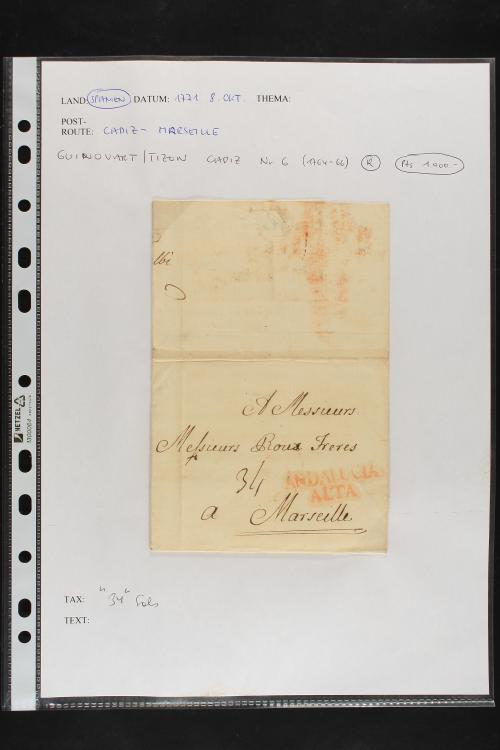 LAND: SPANIEN DATUM: 1771 8. OKT. THEMA:
POST-
ROUTE: CADIZ - MARSEILLE
GUINOVART/TIZON CADIZ Nr 6 (1764-66) R Pts 1.000.-
A Messieurs
Messieurs Roux Freres
34
ANDALUCIA
ALTA
a Marseille
HETZEL
TAX: "34" Sols
TEXT: